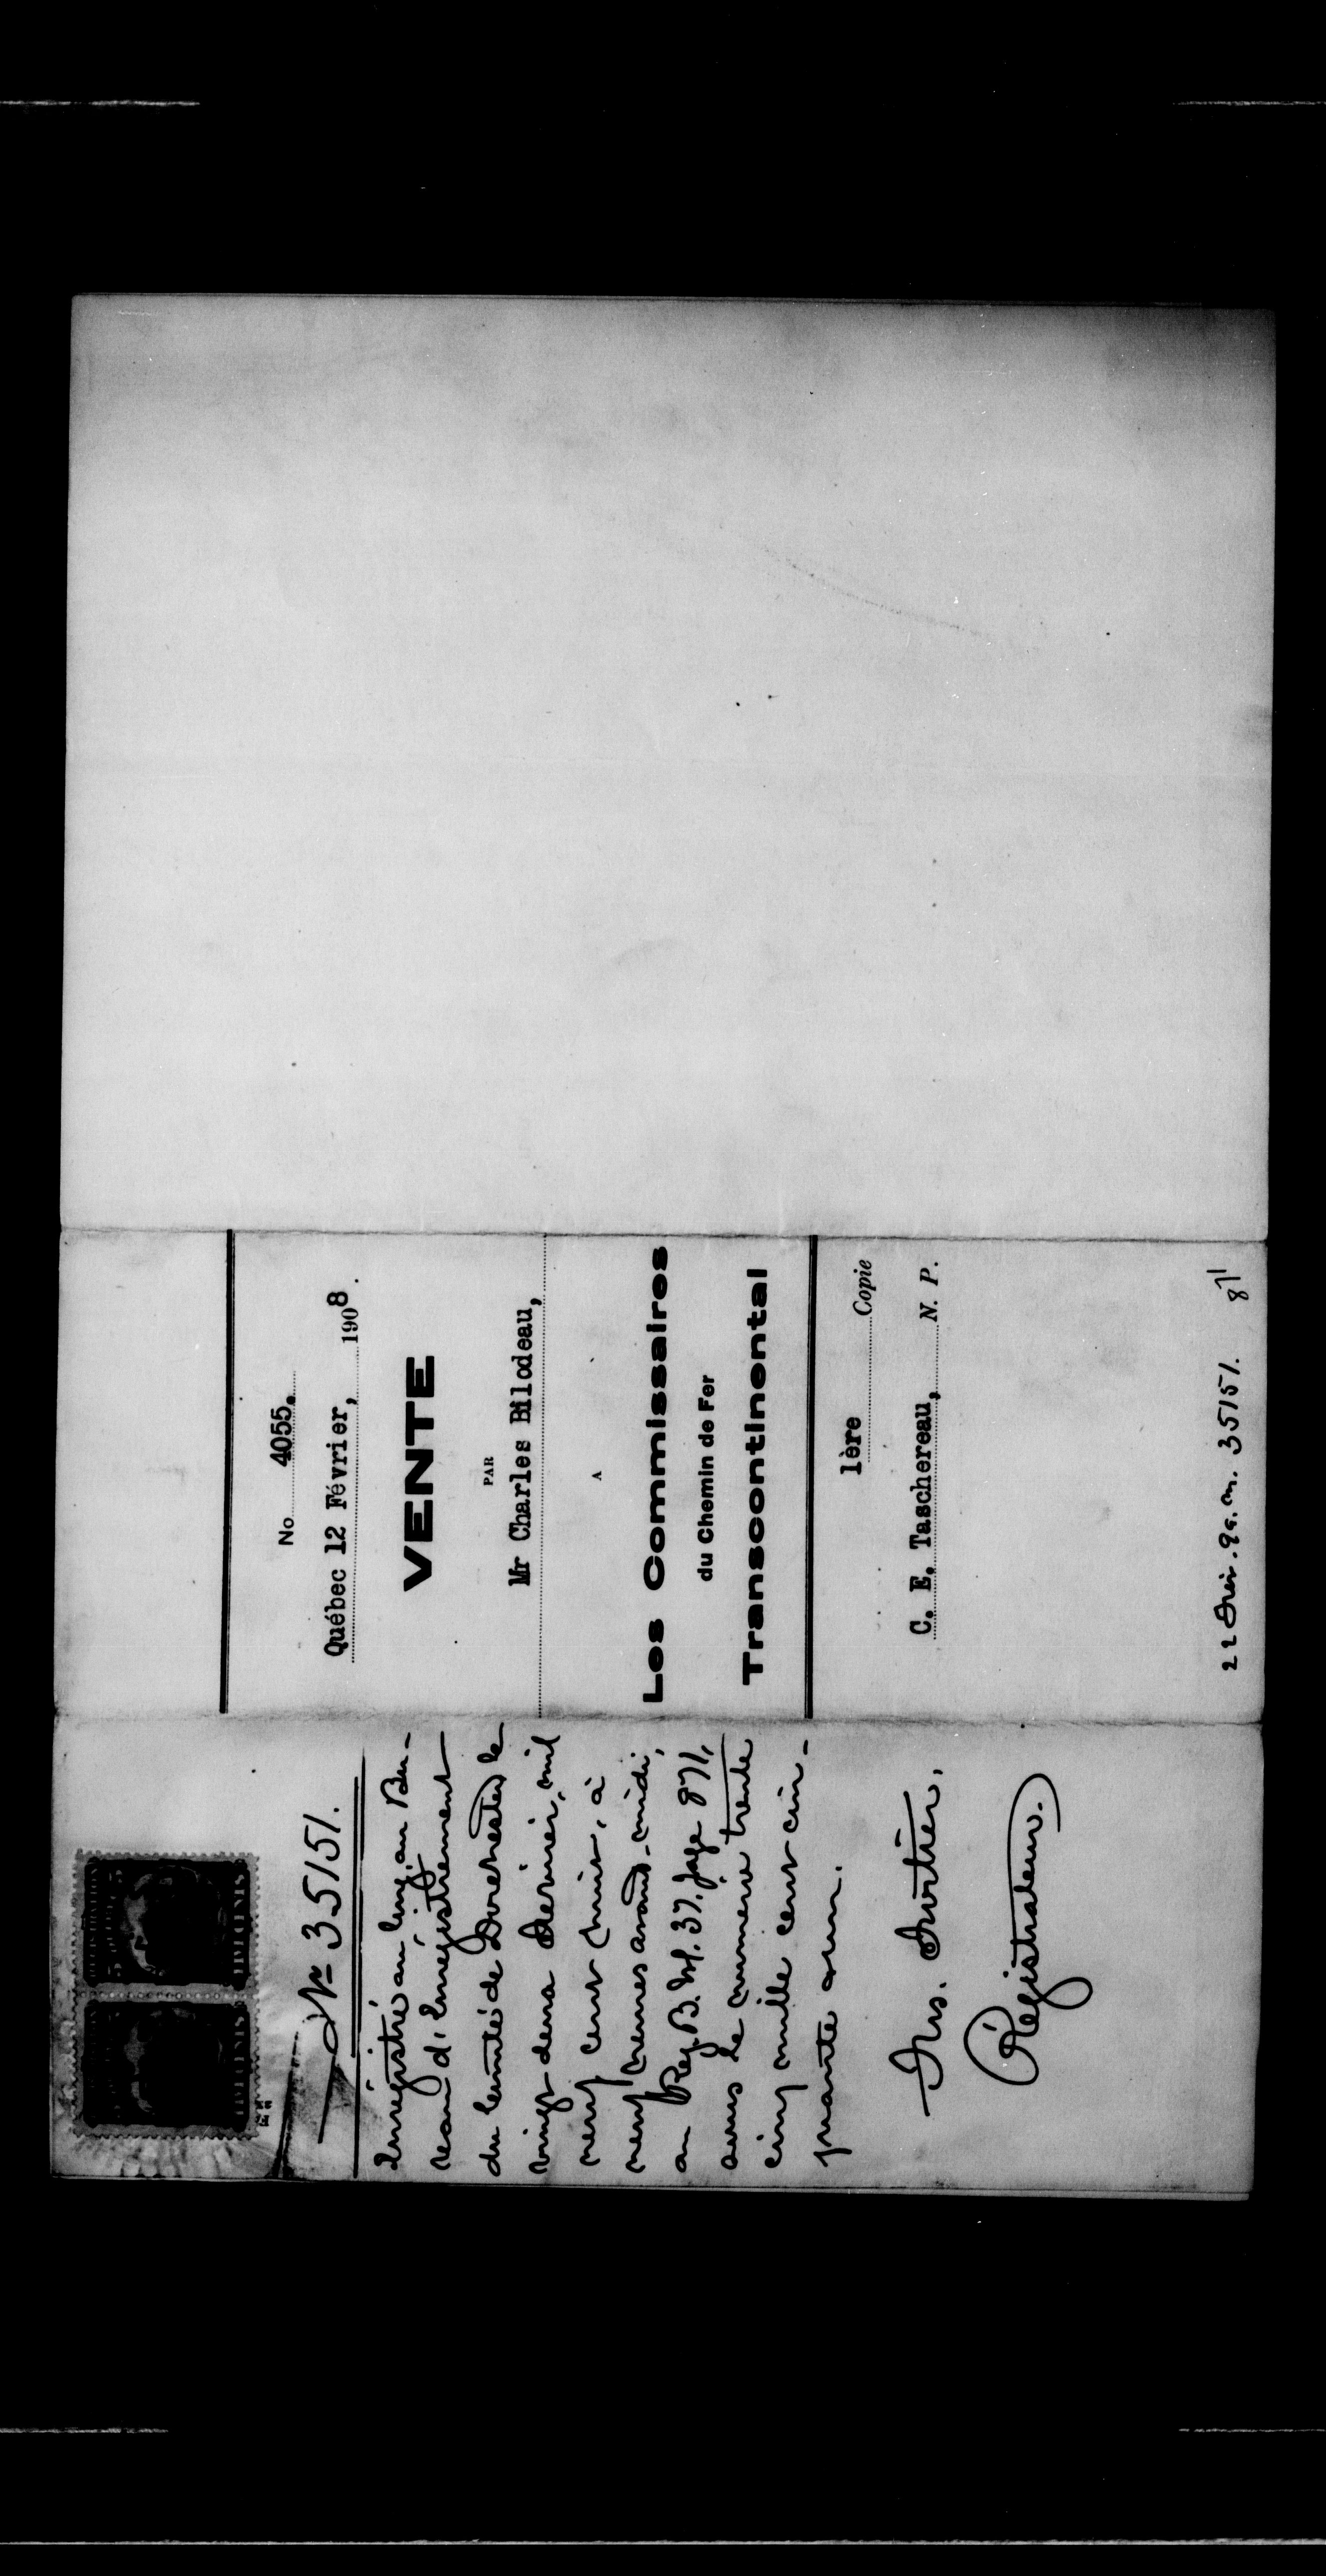 No 35151.
Enregistré au long au Bu-
reau d'Enregistrement
du Comté de Dorchester le
vingt deux Février, mil
neuf cent huit, à
neuf heures avant-midi,
au Reg. B. Vol. 37. page 871,
sous le numéro trente
cinq mille cent cin-
quante et un.
Frs. Fortier,
Régistrateur.
No 4055.
Québec 12 Février, 1908.
VENTE
PAR
Mr Charles Bilodeau,
A
Les Commissaires
du Chemin de Fer
Transcontinental
1ère Copie
C. E. Taschereau, N. P.
22 Fév. 9 a.m. 35151. 871